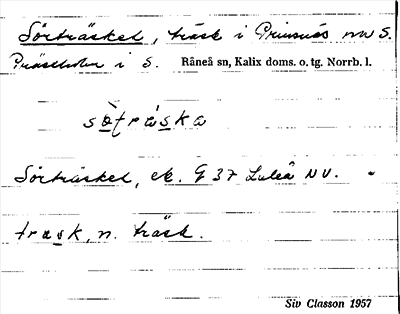 Sörträsket, träsk i Prinsnäs nv S.
Prästholm i S. Råneå sn, Kalix doms. o. tg. Norrb. l.
sø̀tråska
Sörträsket, ek. G 37 Luleå NV.
trask, n. träsk.
Siv Classon 1957